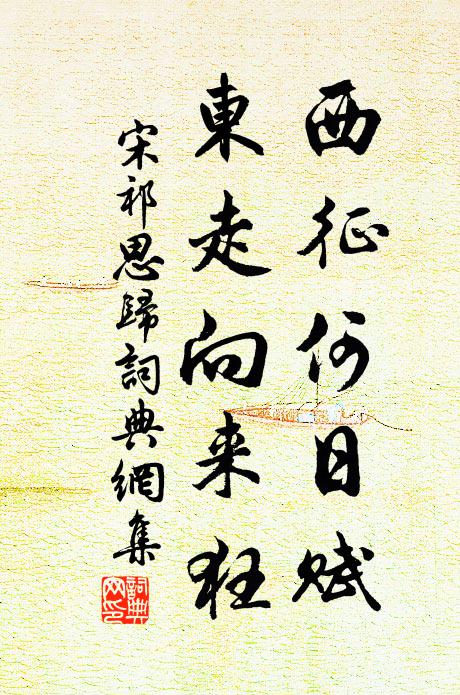 西征何日賦
東走向来狂
宋祁思歸詞典網集
詞典网印